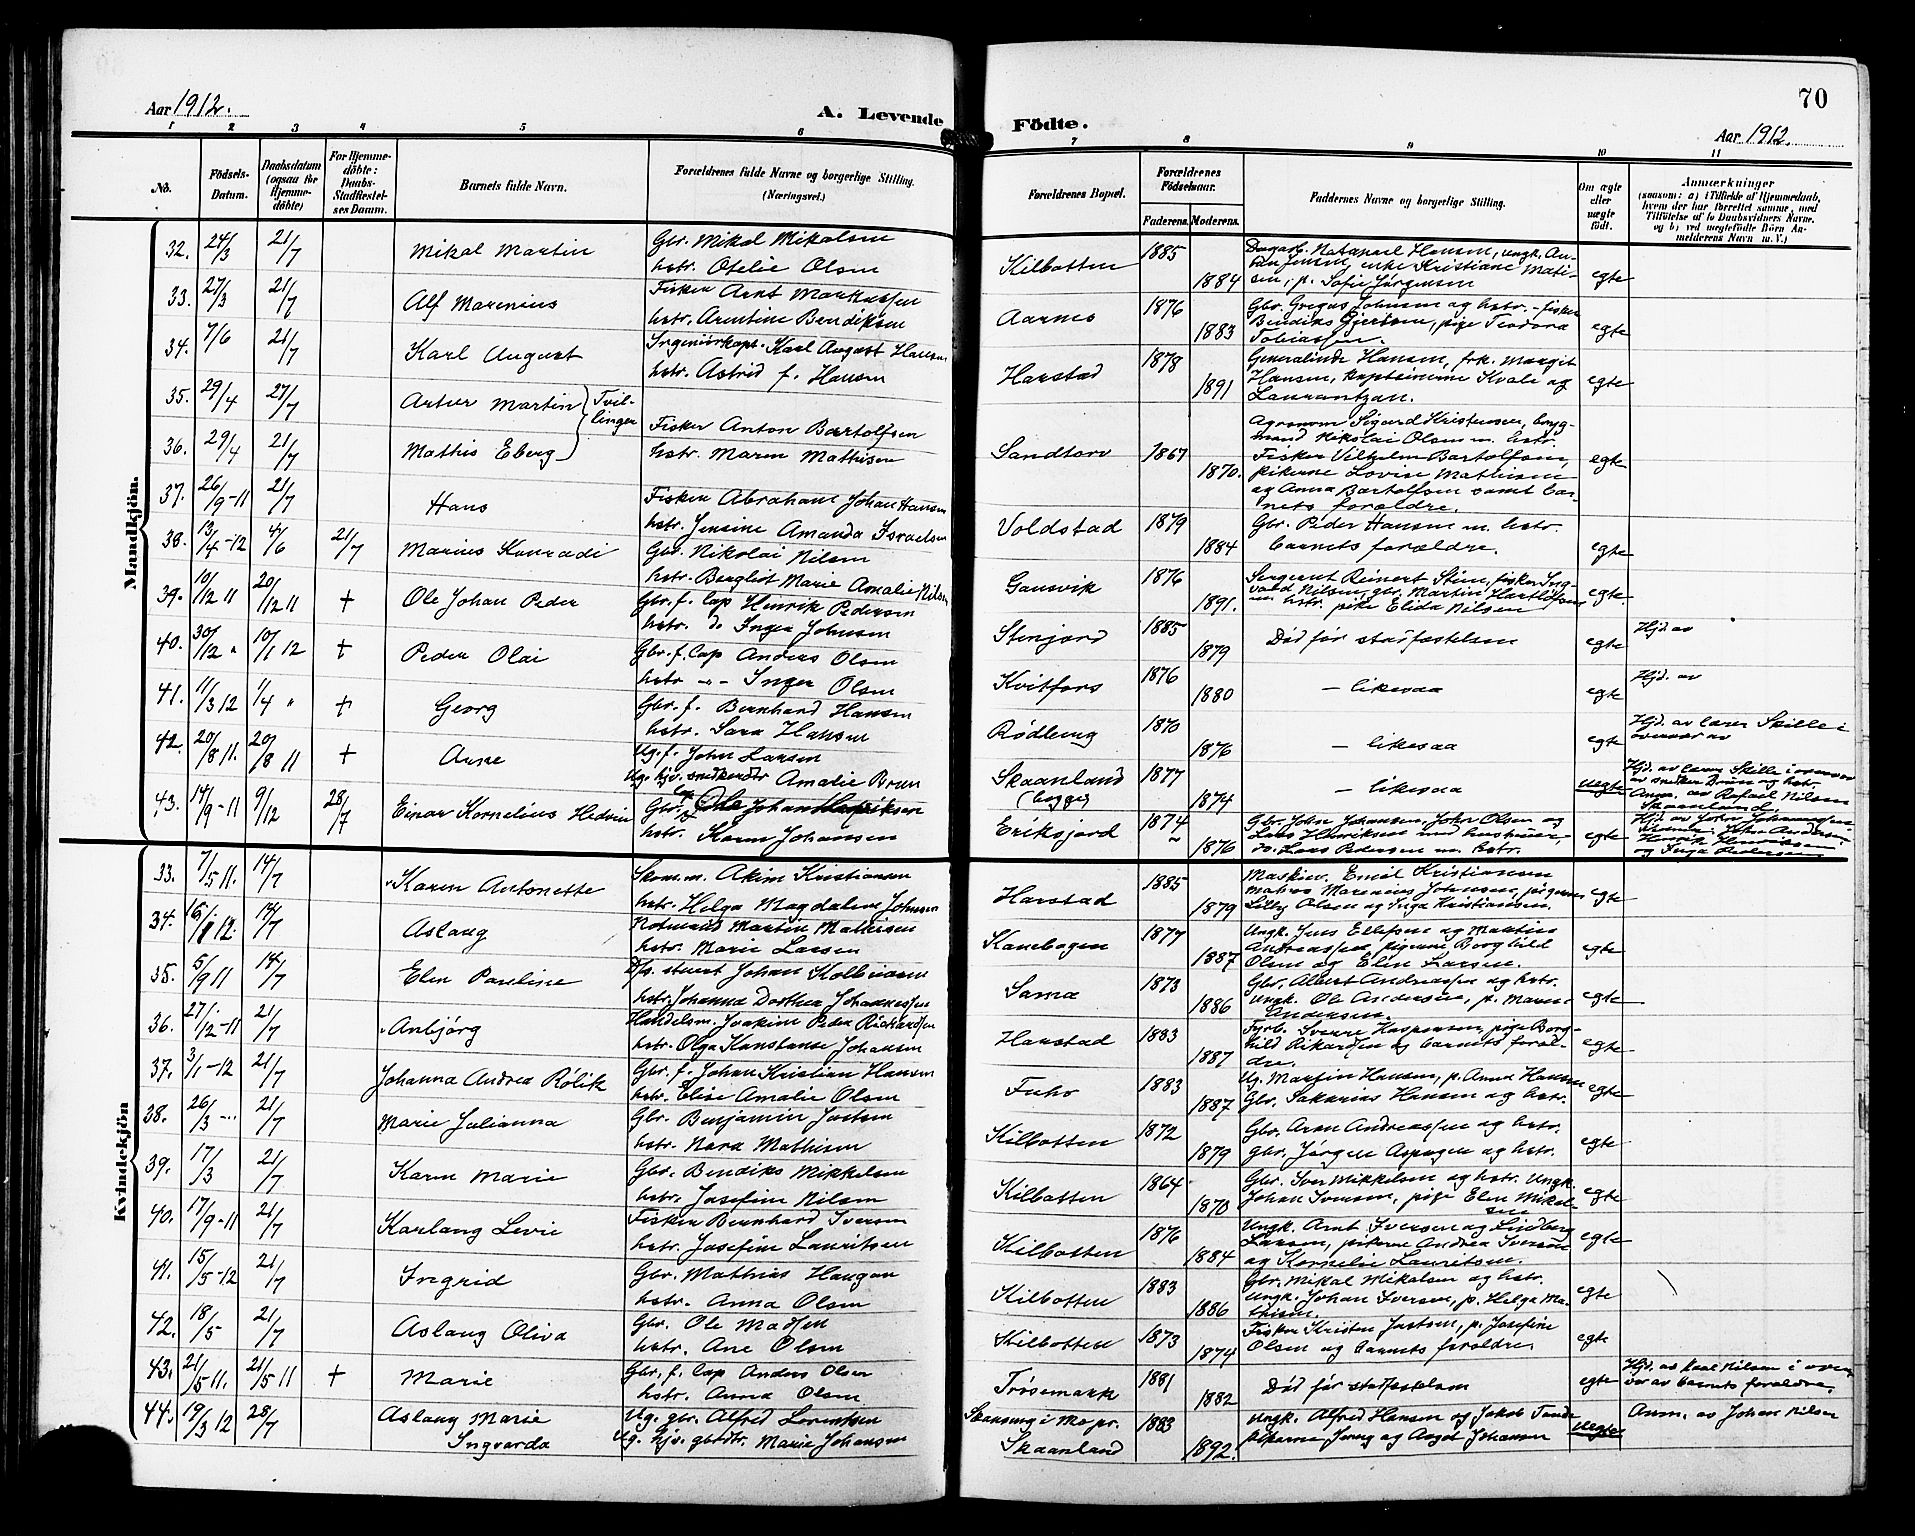 70
Aar 1912.
A. Levende Födte.
Aar 1912.
1 2 3 4 5 6 7 8 9 10 11
No.
Födsels-Datum.
Daabsdatum (ogsaa for Hjemme-döbte)
For Hjemme-döbte: Daabs-Stadfæstelses Datum.
Barnets fulde Navn.
Forældrenes fulde Navne og borgerlige Stilling. (Næringsvei.)
Forældrenes Bopæl.
Forældrenes Födselsaar.
Faderens. Moderens.
Faddernes Navne og borgerlige Stilling.
Om ægte eller uægte födt.
Anmærkninger (saasom: a) i Tilfælde af Hjemmedaab, hvem der har forrettet samme, med Tilföielse af to Daabsvidners Navne, og b) ved uægtefödte Börn Anmelderens Navn m. V.)
Mandkjön.
32. 24/3 21/7 Mikal Martin Gbr. Mikal Mikalsen
hstr. Otelie Olsen Kilbotten 1885 1884 Dagarb. Natanael Hansen, ungk. An-
enke Kristiane Mati-
sen, p. Sofie Jørgensen egte
33. 27/3 21/7 Alf Marenius Fisker Arnt Markussen
hstr. Arntine Bendiksen Aarnes 1876 1883 Gbr. Gregus Johnsen og hstr. - fisker
Bendiks Gjertsen, pige Teodora
Tobiassen. egte
34. 7/6 21/7 Karl August Ingeniørkapt. Karl August Hansen
hstr. Astrid f. Hansen Harstad 1878 1891 Generalinde Hansen, frk. Margit
Hansen, kapteinerne Kvale og
Laurantzon. egte
35. 29/4 27/7 Artur Martin } Tvil-
linger
36. 29/4 21/7 Mathis Eberg Fisker Anton Bartolfsen
hstr. Maren Mathisen Sandtorv 1867 1870. Agronom Sigurd Kristensen, bryg-
mand Nikolai Olsen m. hstr.
Fisker Vilhelm Bartolfsen,
pikerne Lovise Mathisen
og Anna Bartolfsen samt bar-
nets forældre. egte
37. 26/9-11 21/7 Hans Fisker Abraham Johan Hansen
hstr. Jensine Amanda Israelsen Voldstad 1879 1884 Gbr. Peder Hansen m. hstr.
barnets forældre. egte
38. 13/4-12 4/6 21/7 Marius Konradi Gbr. Nikolai Nilsen
hstr. Bergliot Marie Amalie Nilsen Gansvik 1876 1891. Sergeant Reinert Stien, fisker Ing-
vald Nilsen, gbr. Martin Hartløfsen
m. hstr. pike Elida Nilsen egte.
39. 10/12 11 20/12 11 + Ole Johan Peder Gbr. f. Lap Henrik Pedersen
hstr. do Inger Johnsen Stenjord 1885 1879 Død før stadfæstelsen egte Hjd. av
40. 30/12 " 10/1 12 + Peder Olai Gbr. f. Lap Anders Olsen
hstr -"- Inger Olsen Kvitfors 1876 1880 - likesaa egte Hjd. av
41. 11/3 12 1/4 " + Georg Gbr. f. Bernhard Hansen
hstr. Sara Hansen Rødberg 1870 1876 - likesaa egte Hjd. av lærer Skille i
overvær av
42. 20/8 11. 20/8 11 + Arne Ug. f. John Larsen
Ug. hjv. snedkerdtr Amalie Brun Skaanland
(bygge) 1877 1874 - likesaa uegte Hjd. av lærer Skille i overvær
av snedker Brun og hstr.
Anm. av Rafael Nilsen
Skaanland.
43. 14/9-11 9/12 28/7 Einar Kornelius Hedvin Gbr. Lap Ole Johan Henriksen
hstr. Karen Johansen Eriksjord 1874 1876 Gbr. John Johansen, John Olsen og
Lars Henriksen med hustruer,
Lars Pedersen m. hstr. egte Hjd. av John Johannesen
John Andersen
Henrik Henriksen
og Inga Pedersen
Kvindekjön
33. 7/5 11. 14/7 Karen Antonette Skom.m. Akim Kristiansen
hstr. Helga Magdalene Johnsen Harstad 1885 1879 Maskinr. Emil Kristiansen
Matros Marenius Johnsen, pigerne
Lilly Olsen og Inga Kristiansen. egte
34. 16/1 12. 14/7 Aslaug Rotmand Martin Mathisen
hstr. Marie Larsen Kanebogen 1877 1887 Ungk. Jens Ellefsen og Mathis
Andreassen, pigerne Borghild
Olsen og Elin Larsen. egte
35. 5/9 11 14/7 Elen Pauline D/s. stuert Johan Kolbiørn
hstr. Johanna Dorthea Johannessen Sama 1873 1886 Gbr. Albert Andreassen og hstr.
Ungk. Ole Andersen, p. Maren
Andersen. egte
36. 27/12-11 21/7 Anbjörg Handelsm. Joakim Peder Richardsen
hstr. Olga Konstanse Johansen Harstad 1883 1887 Fyrb. Sverre Kaspersen, pige Borg-
hild Rikardsen og barnets foræl-
dre. egte
37. 3/1-12 21/7 Johanna Andrea Rölik Gbr. f. Johan Kristian Hansen
hstr. Elise Amalie Olsen Fuho 1883 1887 Ug. Martin Hansen, p. Anna Hansen
Gbr. Sakarias Hansen og hstr. egte
38. 26/3 -.. 21/7 Marie Julianna Gbr. Benjamin Jostsen
hstr. Nora Mathisen Kilbotten 1872 1879 Gbr. Aron Andreassen og hstr.
gbr. Jørgen Aspagen og hstr. egte
39. 17/3 21/7 Karen Marie Gbr. Bendiks Mikkelsen
hstr. Josefine Nilsen Kilbotten 1864 1870 Gbr. Iver Mikkelsen og hstr. Ungk.
Johan Iversen, pige Elen Mikal-
sen egte
40. 17/9-11 21/7 Karlaug Levie Fisker Bernhard Iversen
hstr. Josefine Lauritsen Kilbotten 1876 1884 Ungk. Arnt Iversen og Lindberg
Larsen, pikerne Andrea Iversen
og Kornelie Lauritsen. egte
41. 15/5-12 21/7 Ingrid Gbr. Mathias Haugan
hstr. Anna Olsen Kilbotten 1883 1886 Gbr. Mikal Mikalsen og hstr.
Ungk. Johan Iversen, p. Helga Ma-
thisen. egte
42. 18/5 21/7 Aslaug Oliva Gbr. Ole Madsen
hstr. Ane Olsen Kilbotten 1873 1874 Fisker Kristen Jostsen, p. Josefine
Olsen og barnets forældre. egte
43. 21/5 11. 21/5 11 + Marie Gbr. f. Lap Anders Olsen
hstr. Anna Olsen Trøsemark 1881 1882 Død før stadfæstelsen egte Hjd. av Karl Nilsen i over-
vær av barnets forældre.
44. 19/3 12 28/7 Aslaug Marie
Ingvarda Ug. gbr. Alfred Lorentsen
Ug. hjv. gbrdtr. Marie Johansen Skansung i Mo pr.
Skaanland 1883 1892. Ungk. Alfred Hansen og Jakob Tande
pikerne Jenny og Aagot Johansen Uegte Anm. av Johan Nilsen